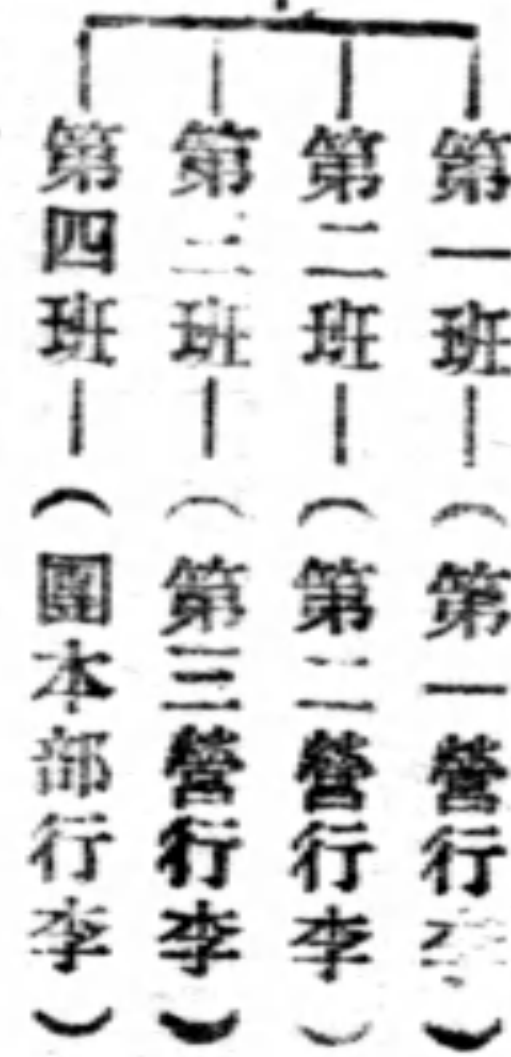 第一班(第一營行李)
第二班(第二營行李)
第三班(第三營行李)
第四班(團本部行李)